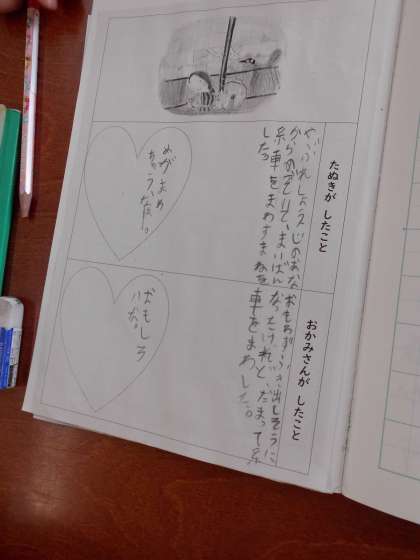 たぬきが したこと
やぶれしょうじのあな
からのぞいて、まいばん
糸車をまわすまねを
した。
めがまわ
おかみさんが したこと
おもわずふき出しそうに
なったけれど、だまって糸
車をまわした。
おもしろ
いな。